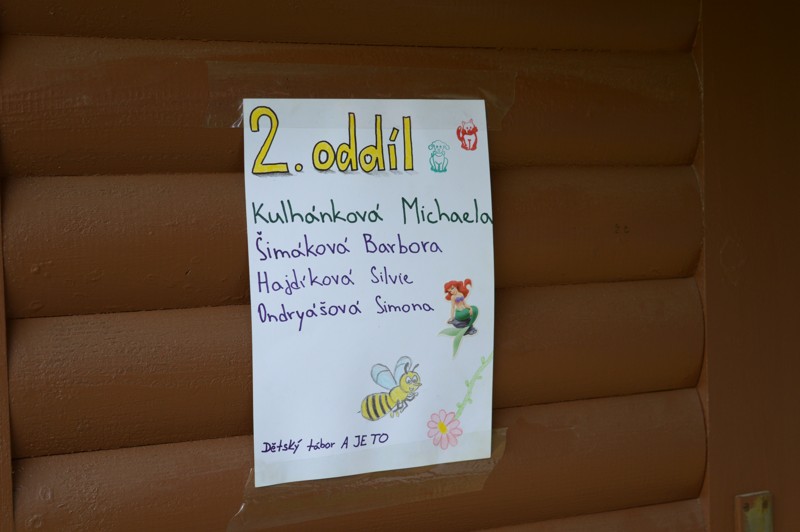 2. oddíl
Kulhánková Michaela
Šimáková Barbora
Hajdíková Silvie
Ondryášová Simona
Dětský tábor A JE TO